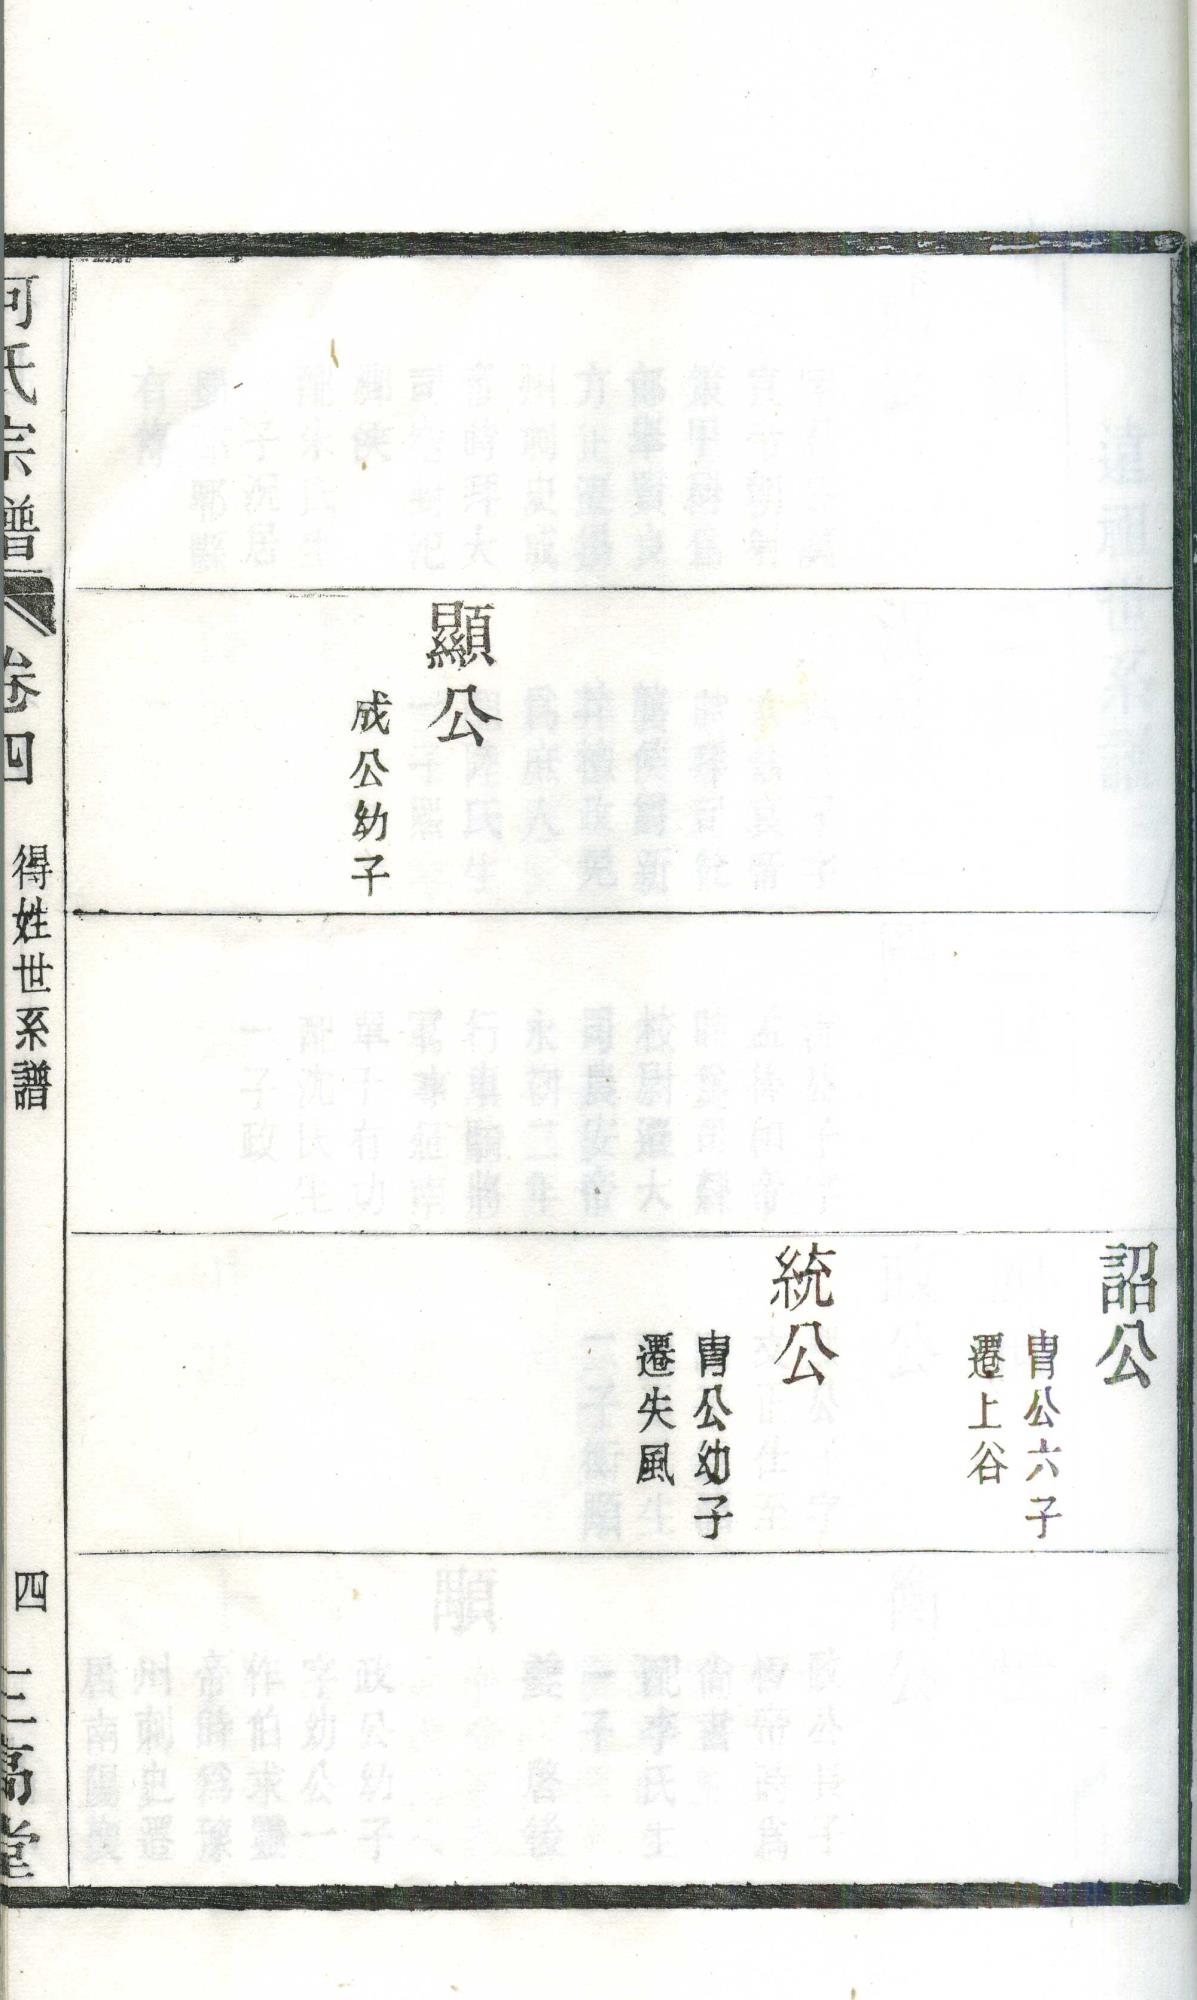 顯公
成公幼子
詔公
胄公六子
遷上谷
統公
胄公幼子
遷失風
何氏宗譜
卷四
得姓世系譜
四
三高堂